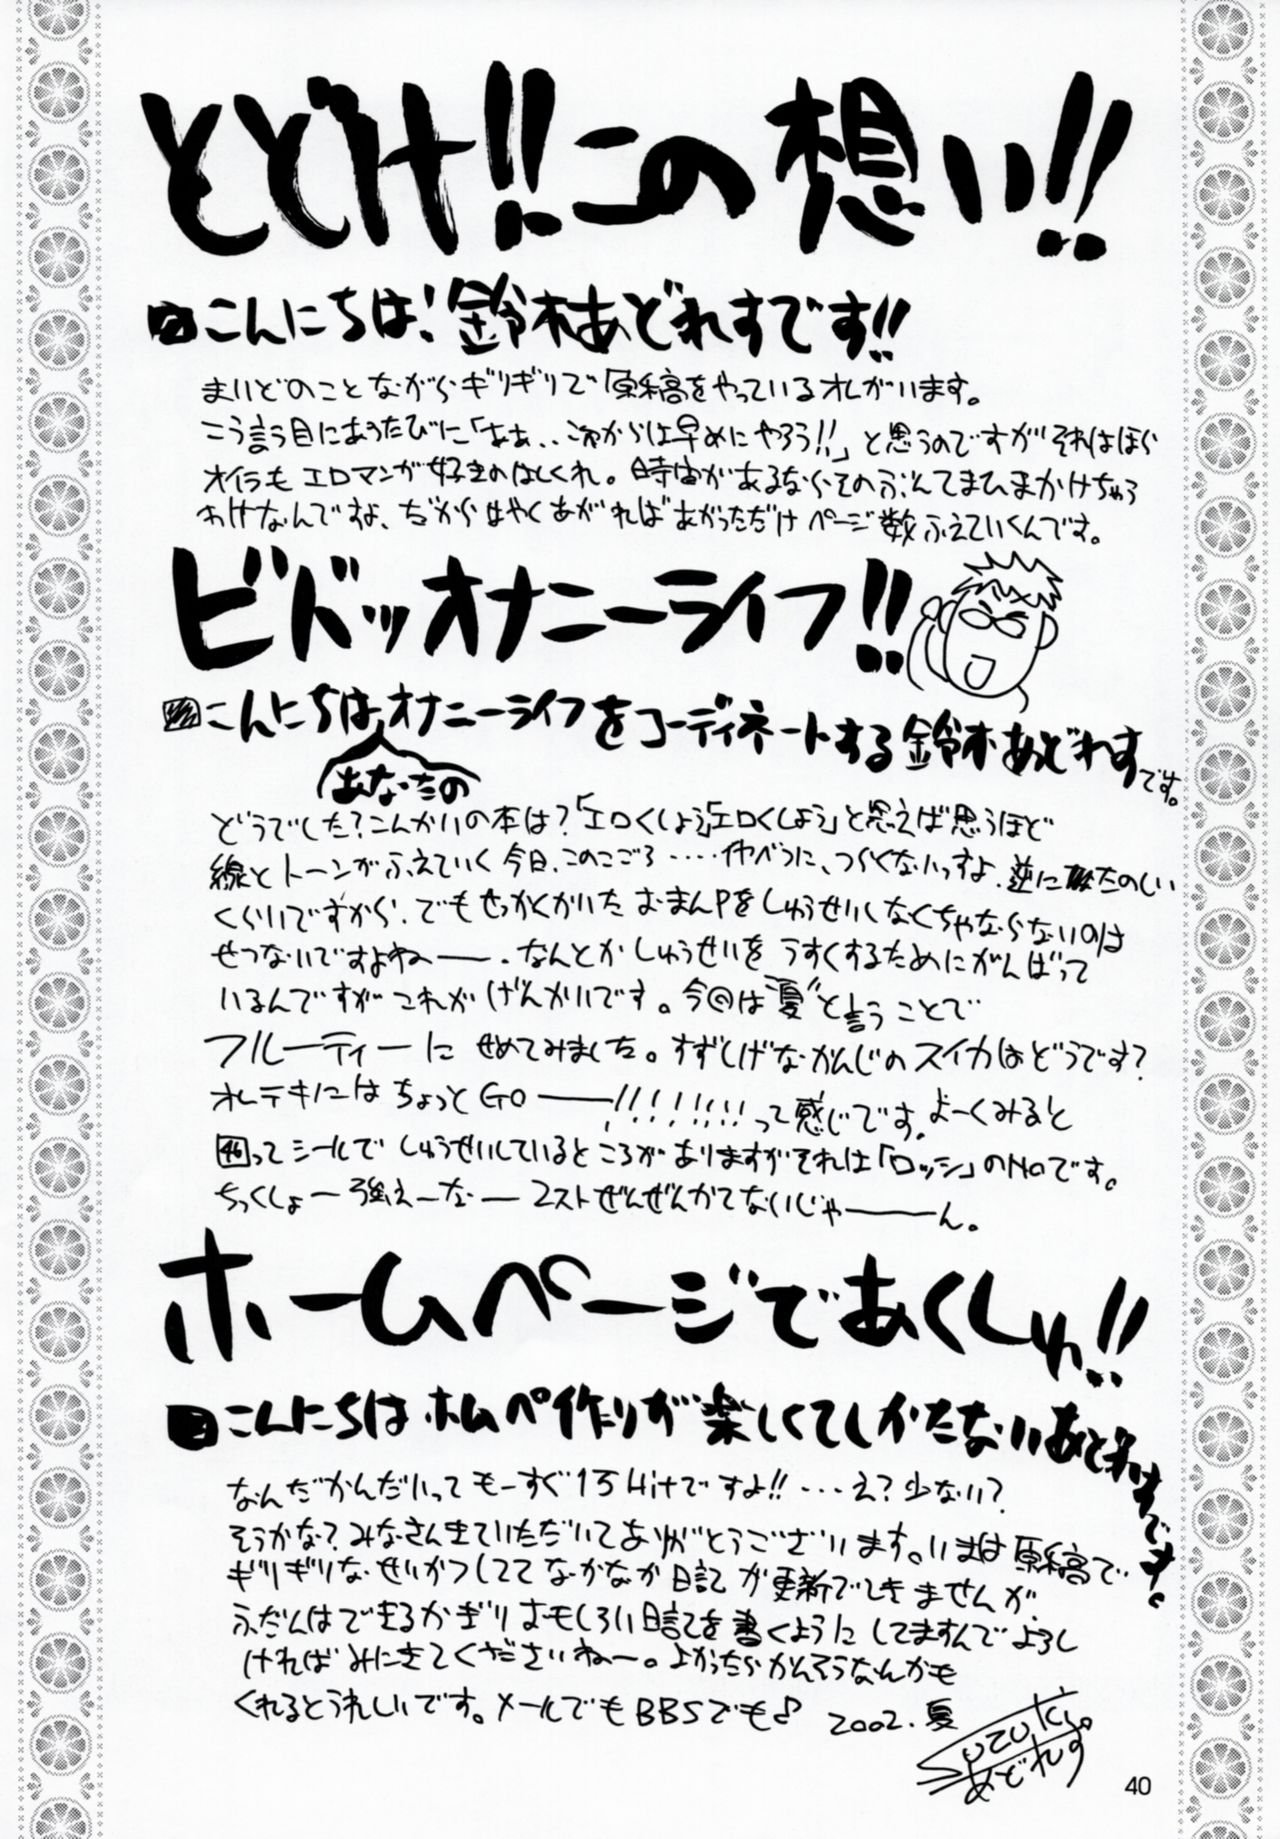 とどけ!!この想い!!
こんにちは!鈴木あどれすです!!
まいどのことながらギリギリで原稿をやっているオレがいます。
こう言う目にあうたびに「ああ、、これからは早めにやろう!!」と思うのですがそれはほら
オイラもエロマンガ好きのはしくれ。時間があるならそのぶんてまひまかけちゃう
わけなんですよ、だからはやくあがればあがっただけページ数ふえていくんです。
ビバドッオナニーライフ!!
こんにちはオナニーライフをコーディネートする鈴木あどれすです。
あなたの
どうでした?こんかいの本は?「エロくしよう」「エロくしよう」と思えば思うほど
線とトーンがふえていく今日、このごろ‥‥‥べつに、つらくないっすよ、逆にたのしい
くらいですから、でもせっかくかいたおまんPをしゅうせいしなくちゃならないのは
せつないですよねー。なんとかしゅうせいをうすくするためにがんばって
いるんですがこれがげんかいです。今回は"夏"と言うことで
フルーティーにせめてみました。すずしげなかんじのスイカはどうです?
オレテキにはちょっとGOー!!!!!!!!って感じです。よーくみると
46ってシールでしゅうせいしているところがありますがそれは「ロッシ」のNoです。
ちっくしょー強えーなー2ストぜんぜんかてないじゃーん。
ホームページであくしゅ!!
こんにちはホムペ作りが楽しくてしかたないあどれすです。
なんだかんだいってもーすぐ15Hitですよ!!‥‥え?少ない?
そうかな?みなさんきていただいてありがとうございます。いまは原稿で
ギリギリなせいかつしててなかなか日記が更新できませんが
ふだんはできるかぎりおもしろい日記を書くようにしてますんでよろし
ければみにきてくださいねー。よかったらかんそうなんかも
くれるとうれしいです。メールでもBBSでも♪ 2002.夏
Suzukiあどれす
40